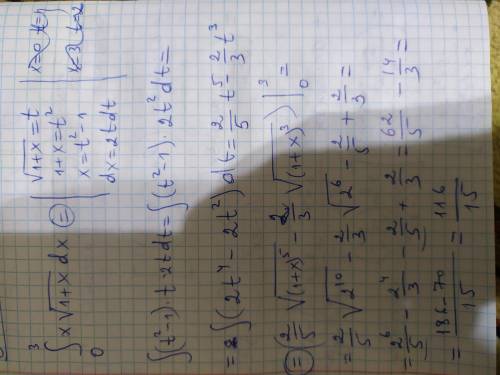 ∫₀³ x√(1+x) dx ⊜ | √(1+x) = t | x=0 t=1
1+x = t² | x=3 t=2
x = t² - 1
dx = 2tdt
∫(t²-1)·t·2tdt = ∫(t²-1)·2t² dt =
= ∫(2t⁴ - 2t²) dt = 2/5 t⁵ - 2/3 t³
⊜ (2/5 √(1+x)⁵ - 2/3 √(1+x)³) |₀³ =
= 2/5 √2¹⁰ - 2/3 √2⁶ - 2/5 + 2/3 =
= 2⁶/5 - 2⁴/3 - 2/5 + 2/3 = 62/5 - 14/3 =
= (186-70)/15 = 116/15